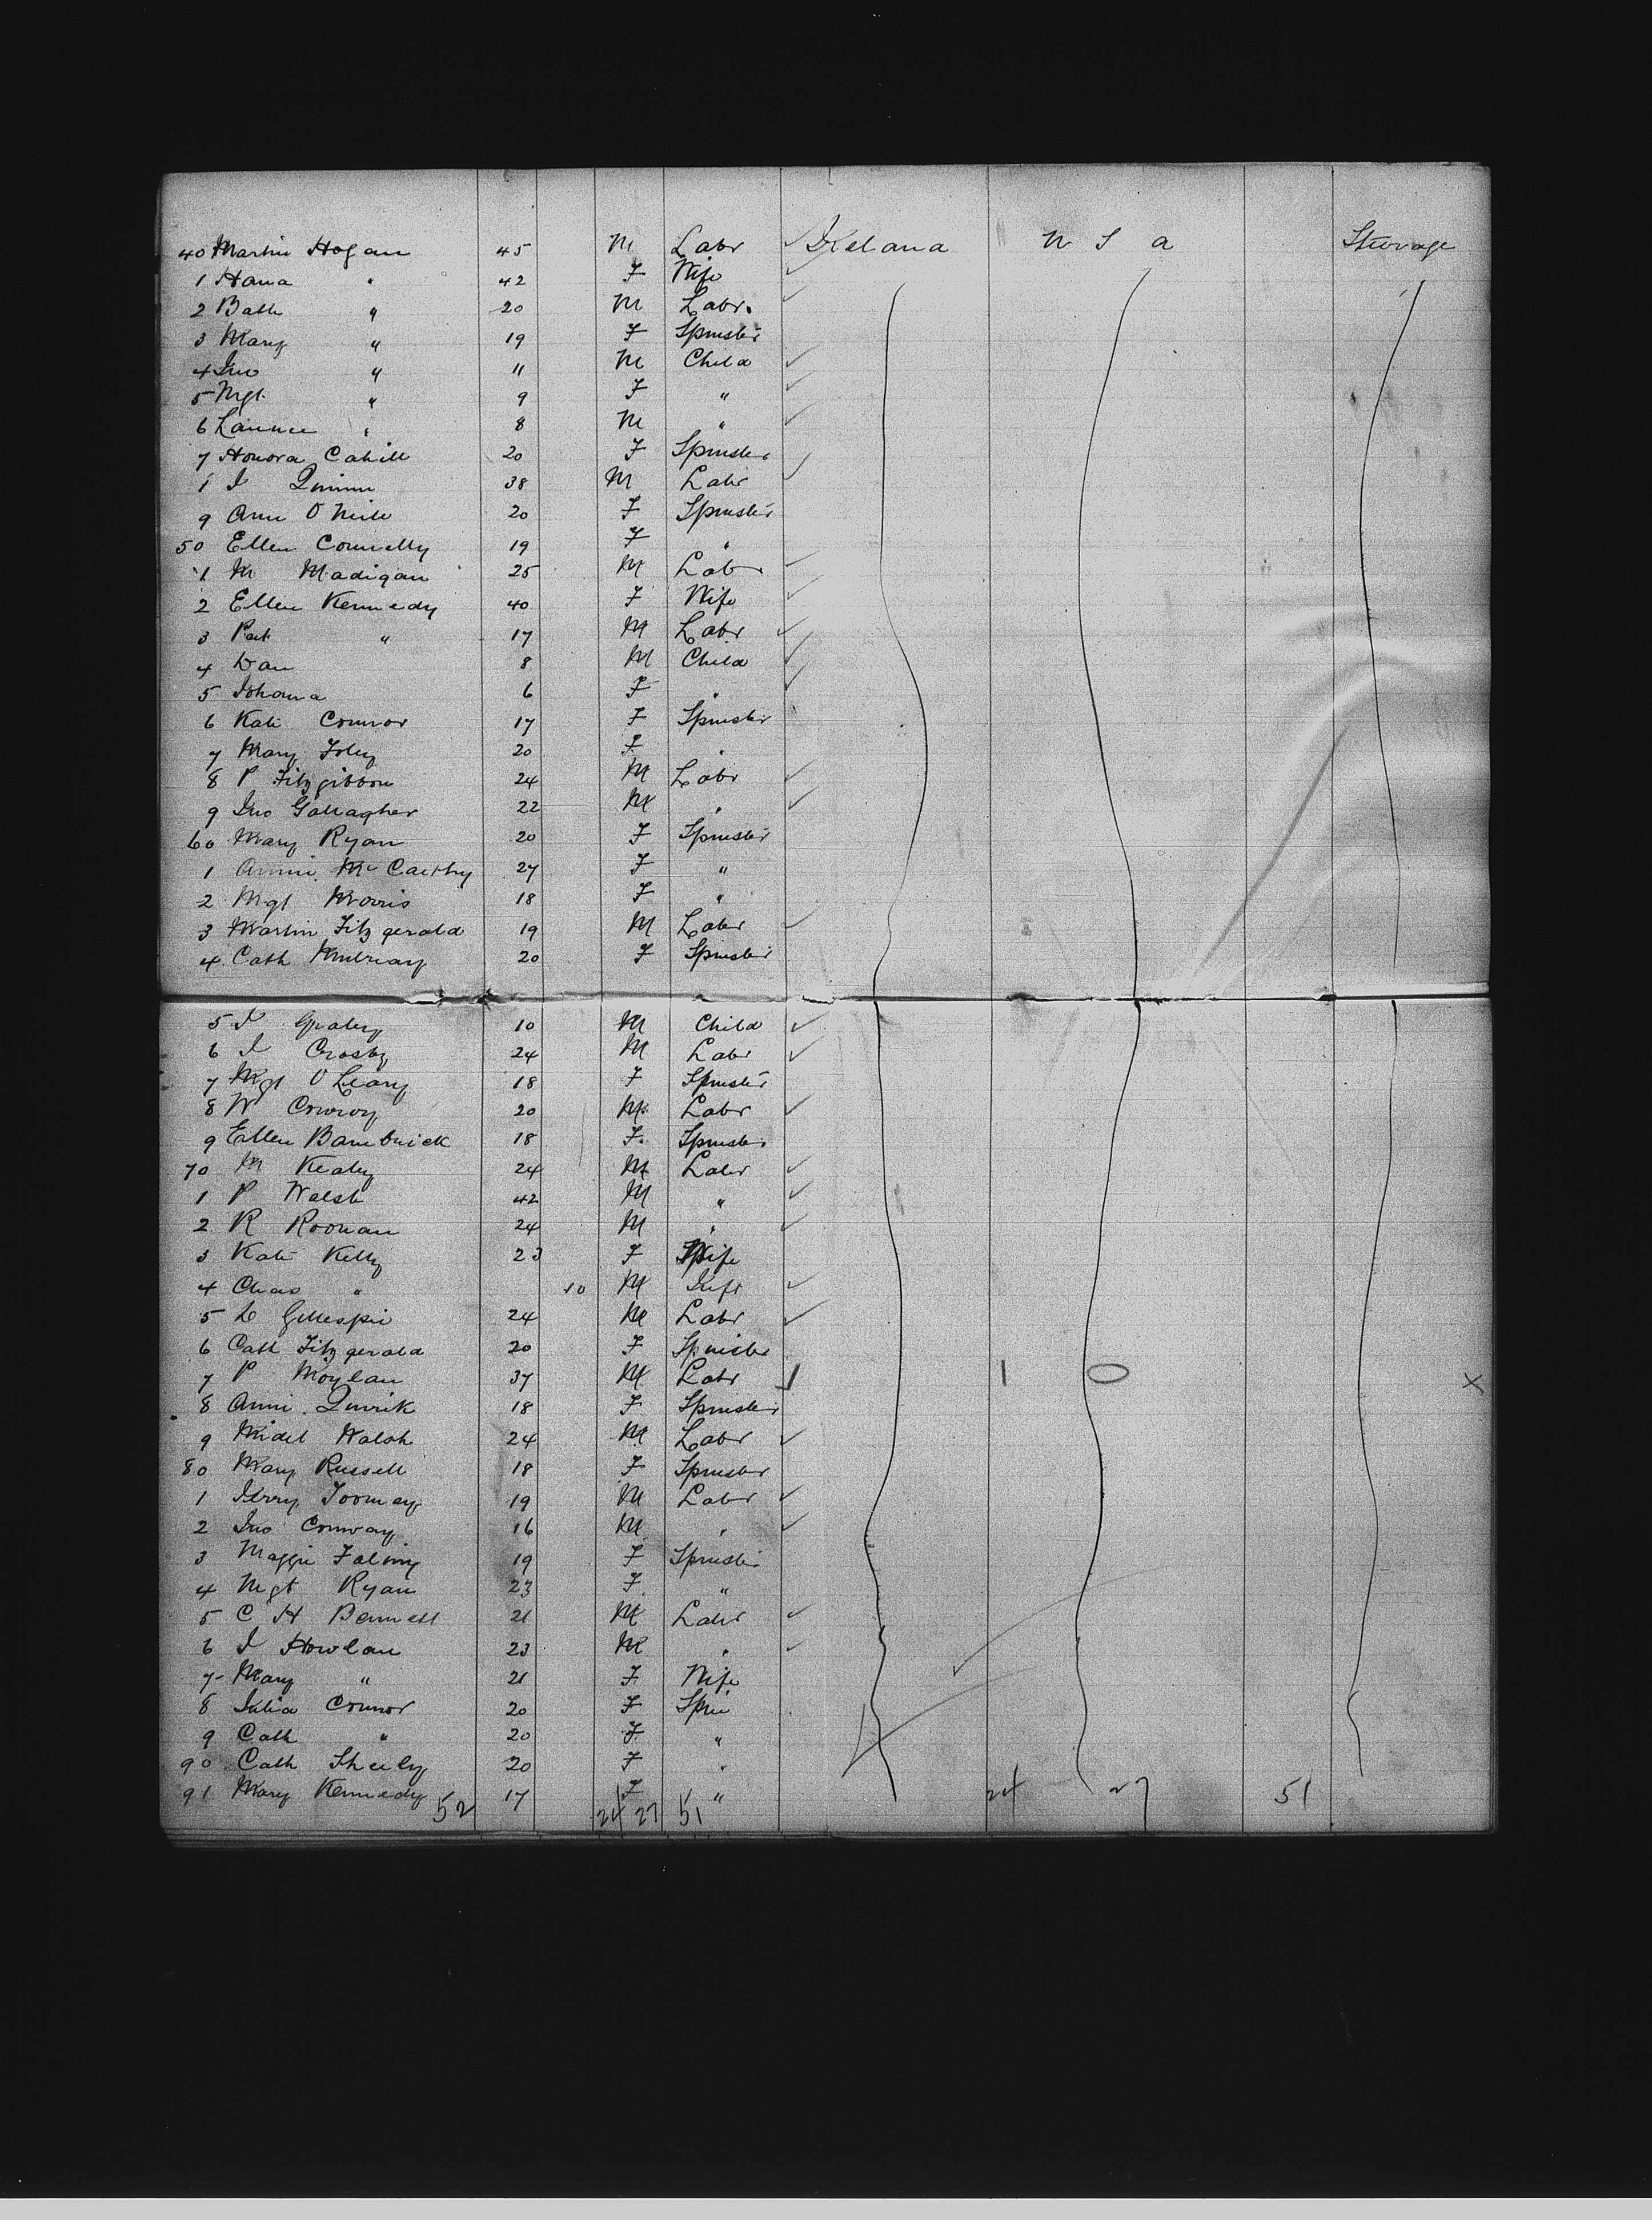 40 Martin Hogan 45 M Labr Ireland U S a Steerage
1 Hana " 42 F Wife
2 Bath " 20 M Labr.
3 Mary " 19 F Spinster
4 Jno " 11 M Child
5 Mgt " 9 F "
6 " 8 M "
7 Honora Cahill 20 F Spinster
38 M Labr
9 Ann O Neile 20 F Spinster
50 Ellen Connelly 19 F "
1 M Madigan 25 M Labr
2 Ellen Kennedy 40 F Wife
3 Pat " 17 M Labr
4 Dan 8 M Child
5 Johana 6 F "
6 Kate Connor 17 F Spinster
7 Mary Foley 20 F "
8 P Fitzgibbon 24 M Labr
9 Jno Gallagher 22 M "
60 Mary Ryan 20 F Spinster
1 Annie Mc Carthy 27 F "
2 Mgt Morris 18 F "
3 Martin Fitzgerald 19 M Labr
4 Cath 20 F Spinster
5 J 10 M Child
6 J Crosby 24 M Labr
7 Mgt O Leary 18 F Spinster
8 W Conroy 20 M Labr
9 Ellen Bambrick 18 F Spinster
70 M Kealy 24 M Labr
1 P Walsh 42 M "
2 R Roonan 24 M "
3 Kate Kelly 23 F Wife
4 Chas " 10 M Inft
5 D Gillespie 24 M Labr
6 Cath Fitzgerald 20 F Spinster
7 P Moylan 37 M Labr 1 0 X
8 Annie Quirik 18 F Spinster
9 Walsh 24 M Labr
80 Mary Russell 18 F Spinster
1 Jerry Toomey 19 M Labr
2 Jno Conway 16 M "
3 Maggie 19 F Spinster
4 Mgt Ryan 23 F "
5 C H Bennett 21 M Labr
6 J Howlan 23 M "
7 Mary " 21 F Wife
8 Julia Connor 20 F Spin
9 Cath " 20 F "
90 Cath Sheehy 20 F "
91 Mary Kennedy 17 F " 24 27 51
52 24 27 51